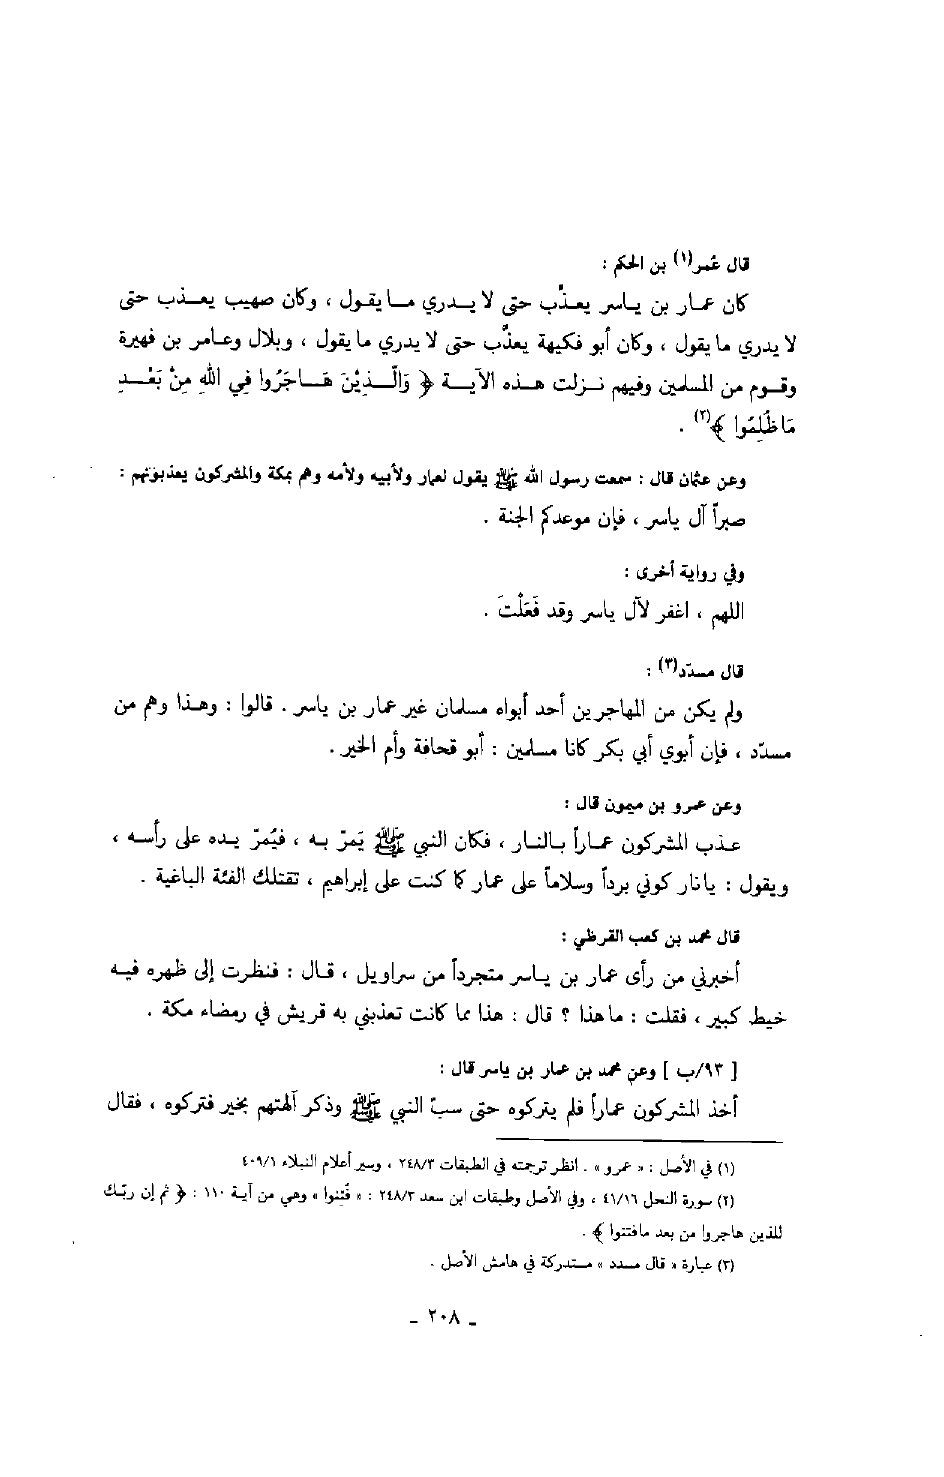 قال عُمر(١) بن الحكم :
كان عمار بن ياسر يعذَّب حتى لا يدري ما يقول ، وكان صهيب يعذب حتى
لا يدري ما يقول ، وكان أبو فكيهة يعذَّب حتى لا يدري ما يقول ، وبلال وعامر بن فهيرة
وقوم من المسلمين وفيهم نزلت هذه الآية ﴿ وَالَّذِيْنَ هَاجَرُوا فِي اللهِ مِنْ بَعْدِ
مَا ظُلِمُوا ﴾(٢) .
وعن عثمان قال : سمعت رسول الله ﷺ يقول لعمار ولأبيه ولأمه وهم بمكة والمشركون يعذبونهم :
صبراً آل ياسر ، فإن موعدكم الجنة .
وفي رواية أخرى :
اللهم ، اغفر لآل ياسر وقد فَعَلْتَ .
قال مسدّد(٣) :
ولم يكن من المهاجرين أحد أبواه مسلمان غير عمار بن ياسر . قالوا : وهذا وهم من
مسدّد ، فإن أبوي أبي بكر كانا مسلمين : أبو قحافة وأم الخير .
وعن عمرو بن ميمون قال :
عذب المشركون عماراً بالنار ، فكان النبي ﷺ يَمرّ به ، فيُمرّ يده على رأسه ،
ويقول : يا نار كوني برداً وسلاماً على عمار كما كنت على إبراهيم ، تقتلك الفئة الباغية .
قال محمد بن كعب القرظي :
أخبرني من رأى عمار بن ياسر متجرداً من سراويل ، قال : فنظرت إلى ظهره فيه
خيط كبير ، فقلت : ما هذا ؟ قال : هذا مما كانت تعذبني به قريش في رمضاء مكة .
[ ٩٣/ب ] وعن محمد بن عمار بن ياسر قال :
أخذ المشركون عماراً فلم يتركوه حتى سبّ النبي ﷺ وذكر آلهتهم بخير فتركوه ، فقال
(١) في الأصل : « عمرو » . انظر ترجمته في الطبقات ٢٤٨/٣ ، وسير أعلام النبلاء ٤٠٩/١
(٢) سورة النحل ٤١/١٦ ، وفي الأصل وطبقات ابن سعد ٢٤٨/٣ : « فُتِنوا » وهي من آية ١١٠ : ﴿ ثم إن ربّك
للذين هاجروا من بعد ما فتنوا ﴾ .
(٣) عبارة « قال مسدد » مستدركة في هامش الأصل .
ـ ٢٠٨ ـ